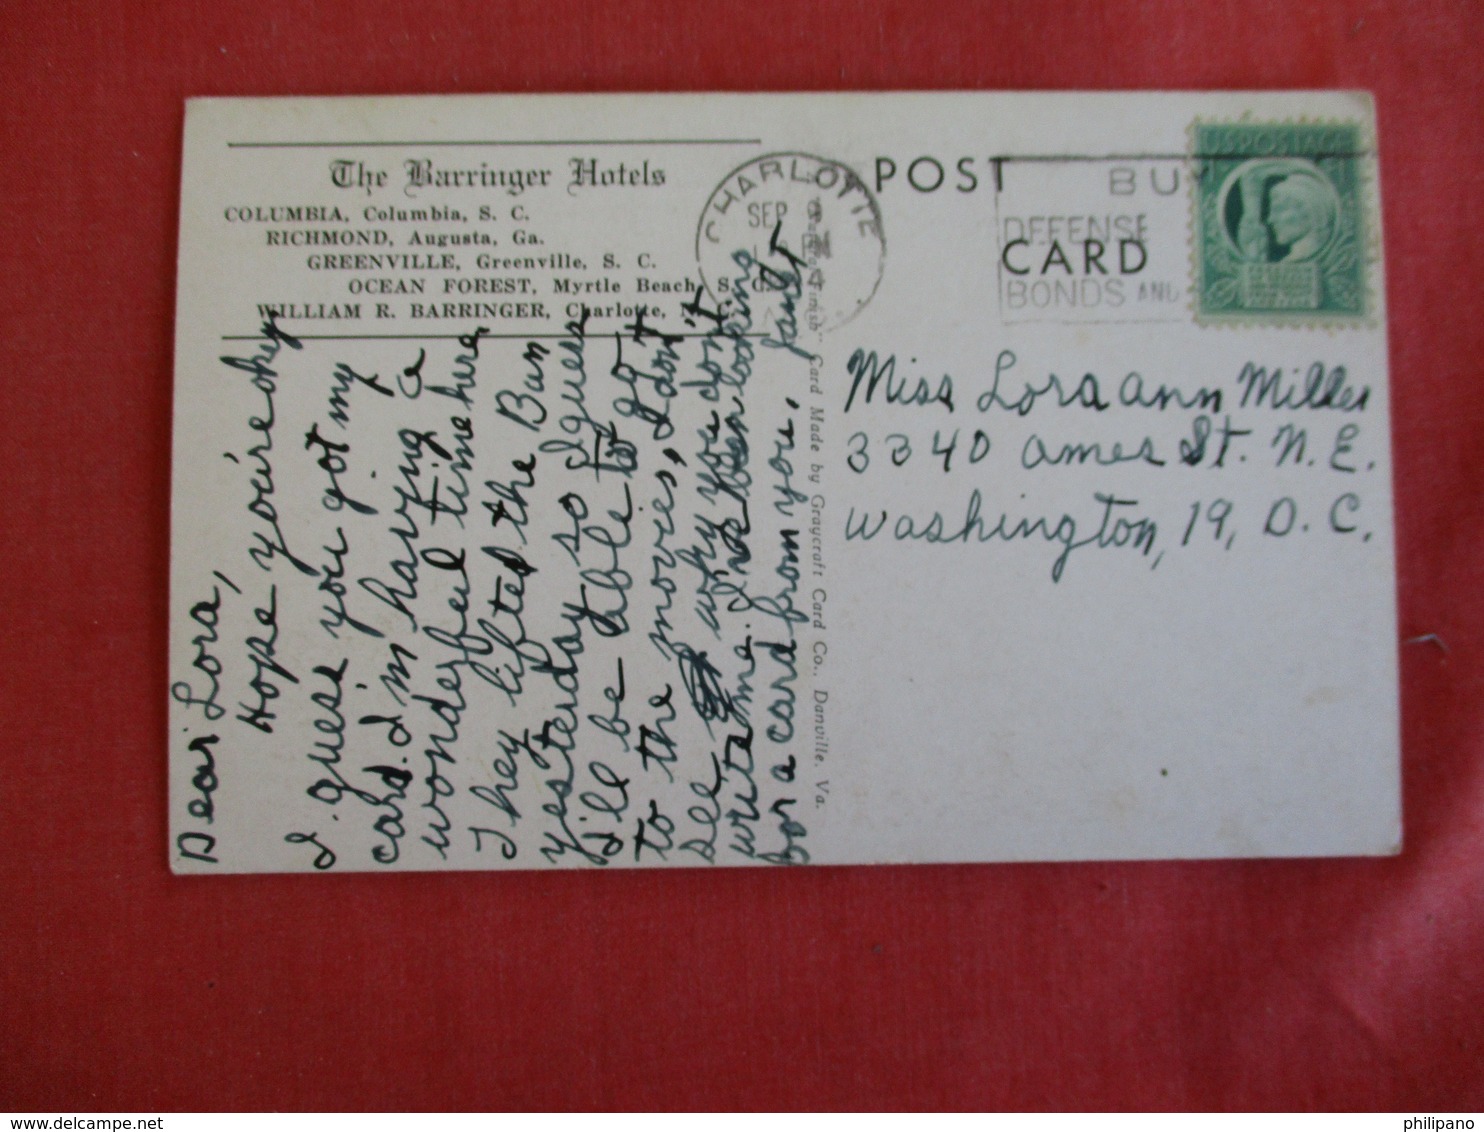 The Barringer Hotels
COLUMBIA, Columbia, S. C.
RICHMOND, Augusta, Ga.
GREENVILLE, Greenville, S. C.
OCEAN FOREST, Myrtle Beach, S. C.
WILLIAM R. BARRINGER, Charlotte, N. C.
Dear Lora,
Hope you're okey.
I guess you got my
card. I'm having a
wonderful time here
They lifted the Ban
yesterday so I guess
I'll be able to go
to the movies, I don't
see why you don't
write me. I've been looking
for a card from you,
Finish" Card Made by Graycraft Card Co., Danville, Va.
CHARLOTTE
SEP 9
POST CARD
BUY
DEFENSE
BONDS AND
U.S. POSTAGE
Miss Lora ann Miller
3340 Ames St. N. E.
Washington, 19, D. C.
philipano
delcampe.net